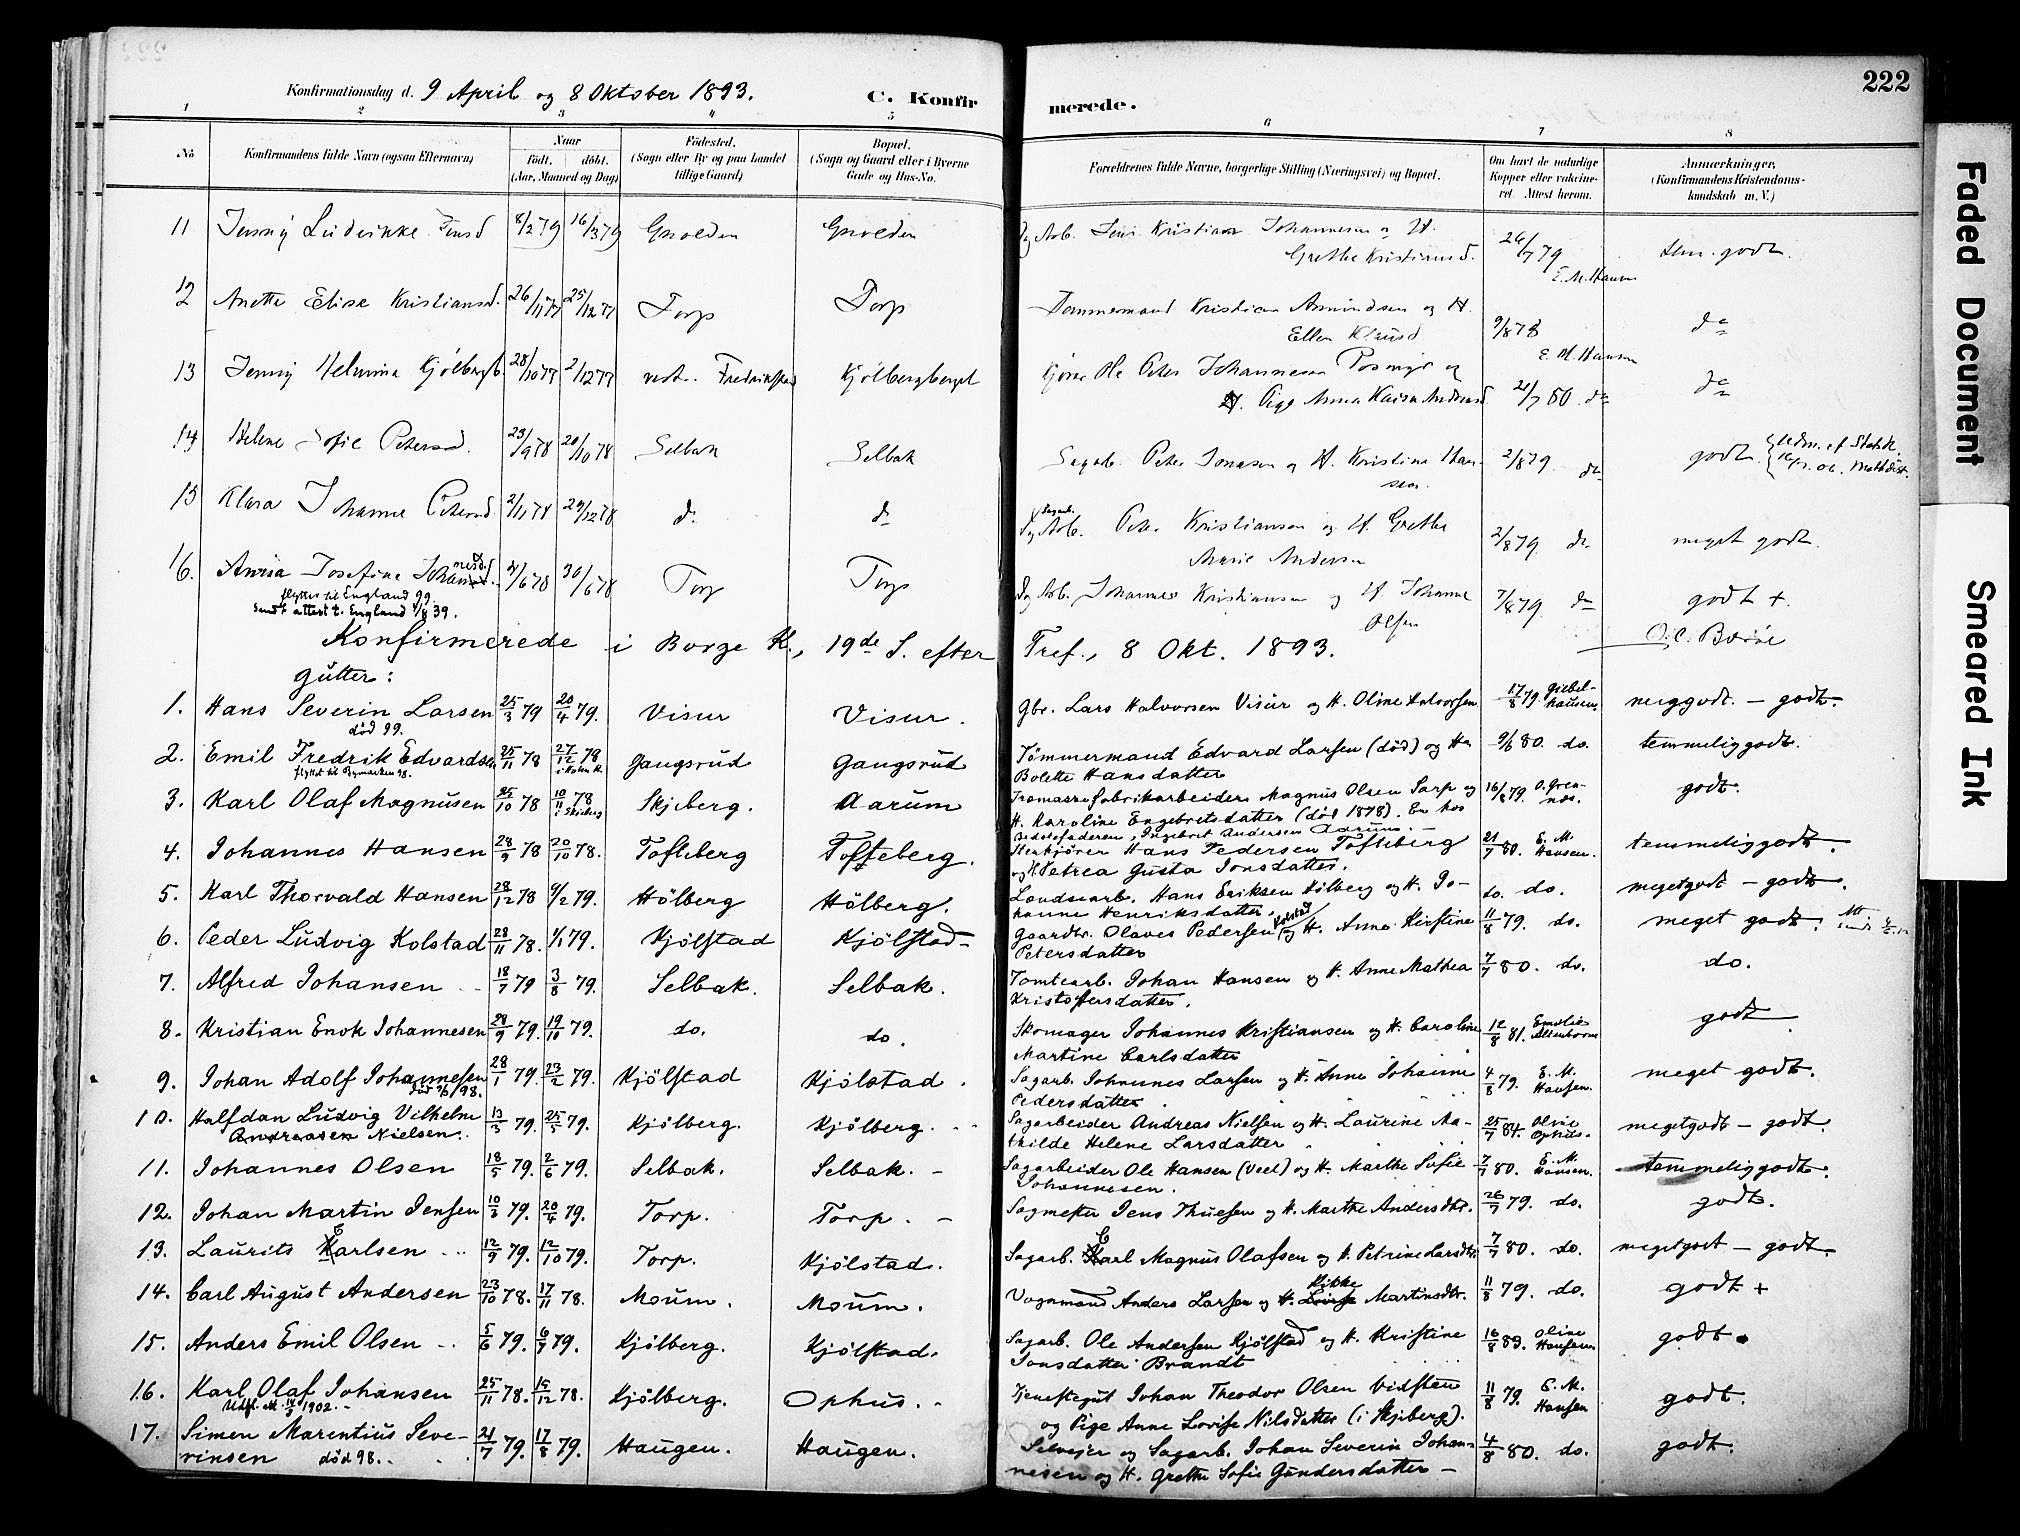 222
Konfirmationsdag d. 9 April og 8 Oktober 1893.
C. Konfirmerede.
1 2 3 4 5 6 7 8
No.
Konfirmandens fulde Navn (ogsaa Efternavn)
Naar
født. døbt.
(Aar, Maaned og Dag)
Fødested.
(Sogn eller By og paa Landet tillige Gaard)
Bopæl.
(Sogn og Gaard eller i Byerne Gade og Hus-No.
Forældrenes fulde Navne, borgerlige Stilling (Næringsvei) og Bopæl.
Om havt de naturlige Kopper eller vaccineret. Attest herom.
Anmærkninger,
(Konfirmandens Kristendomskundskab m. V.)
11 8/2 79 16/3 79
26/7 79 E. M. Hansen tem. godt.
12 Anette Elise Kristiansd. 26/11 77 25/12 77 Torp Torp
Tømmermand Kristian Amundsen og H.
9/8 78 do
E. M. Hansen
13 Jenny Helmina Kjølberg 28/10 77 2/12 77 Fredrikstad Kjølbergberget
Ole Peter Johannesen og
Pige Anna Karin Andersd 21/7 80. do do
14 Helene Sofie Petersd. 23/9 78 20/10 78 Selbak Selbak
Sagarb. Peter Jonasen og H. Kristine Hansen. 2/8 79 do godt.
15 Klara Johanne Petersd. 2/11 78 29/12 78 do do
Peter Kristiansen og H. Grethe
Marie Andersen 2/8 79 do meget godt.
16. Anna Josefine Johannesd. 21/6 78 30/6 78 Torp Torp
flyttet til England 99.
Sendt attest t. England 1/8 39.
Dag Arb. Johannes Kristiansen og H. Johanne
Olsen 7/8 79 do godt +
Konfirmerede i Borge K., 19de S. efter Tref., 8 Okt. 1893.
Gutter:
1. Hans Severin Larsen 25/3 79 20/4 79. Visur Visur.
død 99.
Gbr. Lars Halvorsen Visur og H. Oline Halvorsen 17/8 79 Giebelhausen meggodt. – godt.
2. Emil Fredrik Edvardsen 25/11 78 27/12 78 Gangsrud Gangsrud
Tømmermand Edvard Larsen (død) og H.
Bolette Hansdatter 9/6 80. do. temmeliggodt.
3. Karl Olaf Magnusen 25/10 78 10/11 78 i Skjeberg Skjeberg. Aarum
Træmassefabrikarbeider Magnus Olsen Sarp og
H. Karoline Engebretsdatter (død 1878). Er hos
Bedstefaderen, Ingebret Andersen Aarum. –
16/8 79. godt.
4. Johannes Hansen 28/9 78 20/10 78. Tofteberg Tofteberg.
Hans Pedersen Tofteberg
og H. Petrea Gusta Jonsdatter. 21/7 80. E. M. Hansen. temmeliggodt.
5. Karl Thorvald Hansen 28/12 78 9/2 79. Hölberg Hölberg.
Landsearb. Hans Eriksen Hölberg og H. Johanne Henriksdatter. do. do. megetgodt – godt.
6. Peder Ludvig Kolstad 28/11 78. 1/1 79. Kjölstad Kjölstad
Gaardbr. Olaves Pedersen Kolstad og H. Anna Kirstine
Petersdatter 11/8 79. do. meget godt.
7. Alfred Johansen 18/7 79 3/8 79. Selbak. Selbak.
Tomtearb. Johan Hansen og H. Anne Mathea
Kristoffersdatter. 7/7 80. do. do.
8. Kristian Enok Johannesen 28/9 79. 19/10 79. do. do.
Skomager Johannes Kristiansen og H. Caroline
Martine Carlsdatter 12/8 81. godt
9. Johan Adolf Johannesen 28/1 79. 23/2 79. Kjölstad Kjölstad.
Sagarb. Johannes Larsen og H. Anne Johanne
Pedersdatter 4/8 79. E. M. Hansen. meget godt.
10. Halfdan Ludvig Vilhelm
Andreasen Nielsen. 13/3 79. 25/5 79. Kjölberg. Kjölberg.
Sagarbeider Andreas Nielsen og H. Laurine Mathilde Helene Larsdatter 25/7 84. Oline Ophus. megetgodt – godt.
11. Johannes Olsen 18/5 79. 2/6 79. Selbak. Selbak.
Sagarbeider Ole Hansen (Veel) og H. Marthe Sofie
Johannesen. 7/7 80. E. M. Hansen. temmeliggodt.
12. Johan Martin Jensen 10/3 79. 20/4 79. Torp. Torp.
Sagmester Jens Thuesen og H. Marthe Andersdtr. 26/7 79. do. godt.
13. Laurits Karlsen 12/9 79. 12/10 79. Torp. Kjölstad.
Sagarb. Karl Magnus Olafsen og H. Petrine Larsdtr. 7/7 80. do. megetgodt – godt.
14. Carl August Andersen 23/10 78. 17/11 78. Moum. Moum.
Vognmand Anders Larsen og H. Martinsdtr. 11/8 79. do. godt +
15. Anders Emil Olsen 5/6 79. 6/7 79. Kjölberg. Kjölstad.
Sagarb. Ole Andersen Kjölstad og H. Kristine
Jonsdatter Brandt 16/8 83. Oline Hansen godt.
16. Karl Olaf Johansen 25/11 78. 15/12 78. Kjölberg. Ophus.
Tjenestegut Johan Theodor Olsen Vidsten
og Pige Anne Lovise Nilsdatter (i Skjeberg). 11/8 79. E. M. Hansen godt.
17. Simen Marentius Severinsen død 98. 21/7 79. 17/8 79. Haugen. Haugen.
Selveier og Sagarb. Johan Severin Johannesen og H. Grethe Sofie Gundersdatter – 4/8 80. do. godt.
Faded Document
Smeared Ink